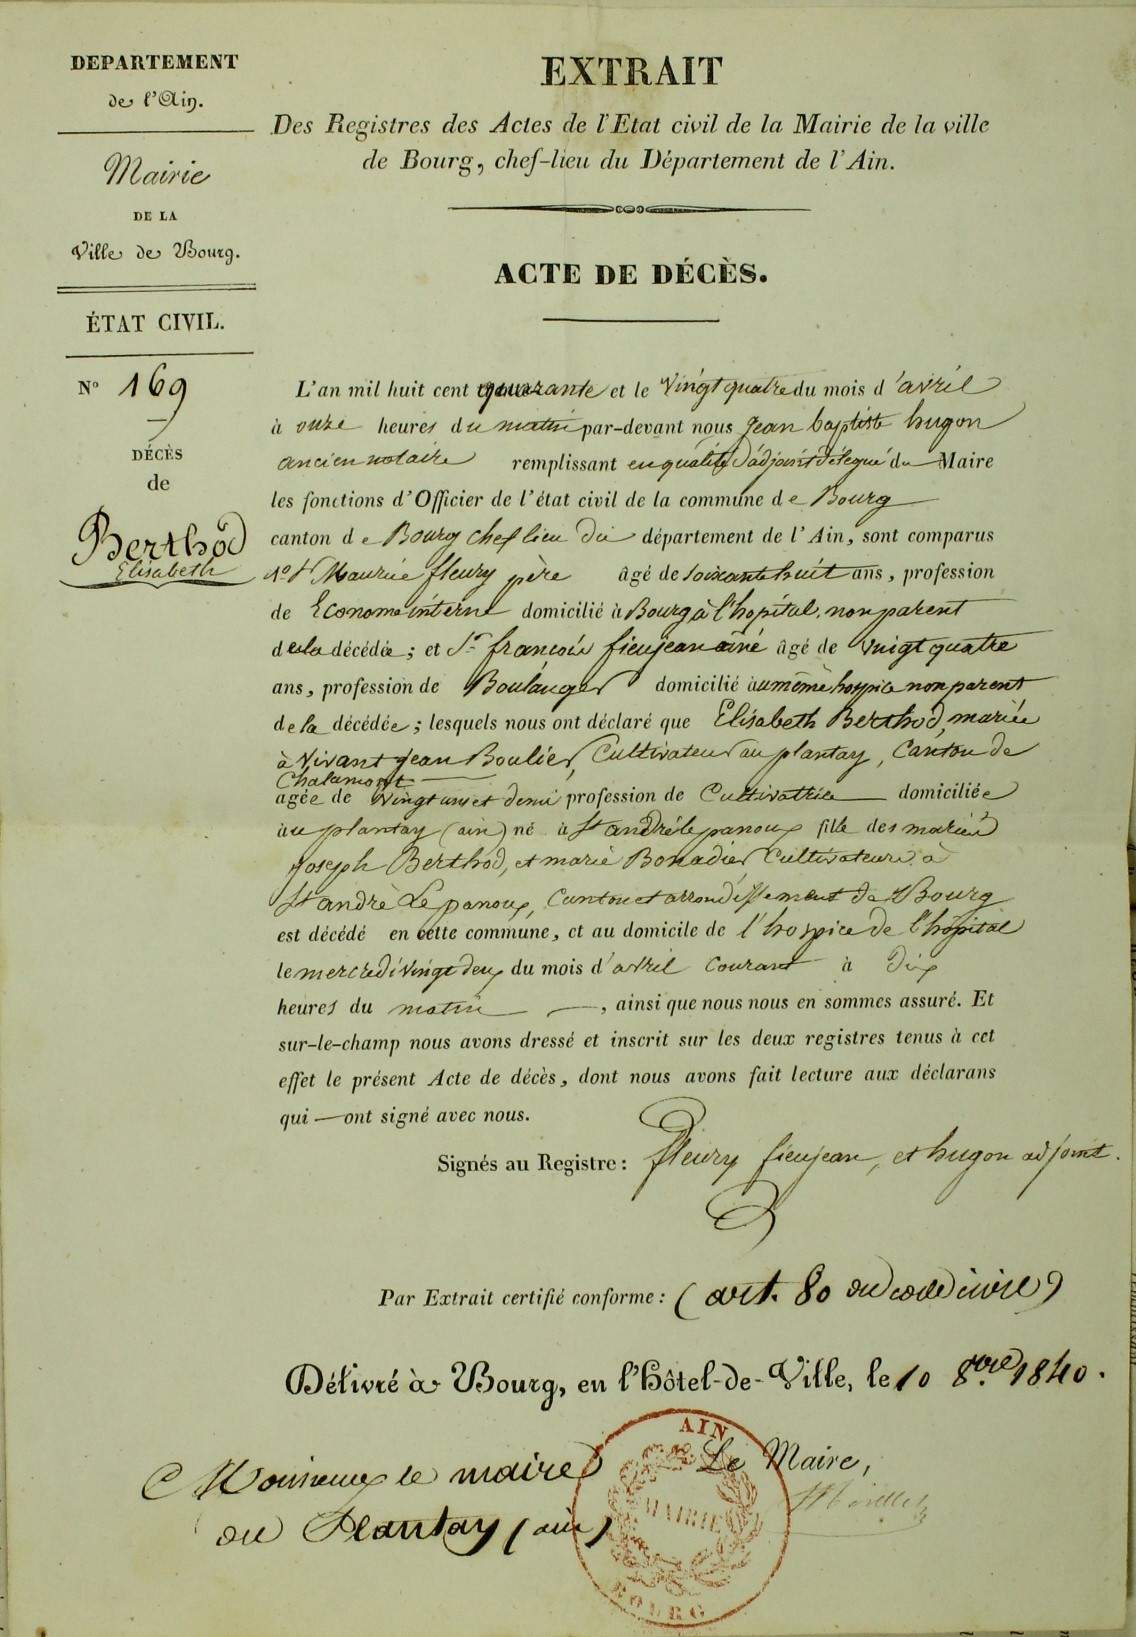 DEPARTEMENT
de l'Ain.
Mairie
DE LA
Ville de Bourg.
ÉTAT CIVIL.
N° 169
DÉCÈS
de
Berthod
Elisabeth
EXTRAIT
Des Registres des Actes de l'Etat civil de la Mairie de la ville
de Bourg, chef-lieu du Département de l'Ain.
ACTE DE DÉCÈS.
L'an mil huit cent quarante et le vingt quatre du mois d'avril
à onze heures du matin par-devant nous Jean baptiste hugon
ancien notaire remplissant en qualité d'adjoint délégué du Maire
les fonctions d'Officier de l'état civil de la commune de Bourg
canton de Bourg chef lieu du département de l'Ain, sont comparus
Maurice fleury père âgé de soixante huit ans, profession
de Econome interne domicilié à Bourg à l'hopital, non parent
de la décédée; et Sr. françois fieujean ainé âgé de vingt quatre
ans, profession de Boulanger domicilié au même hospice non parent
de la décédée; lesquels nous ont déclaré que Elisabeth Berthod, mariée
à vivant Jean Boulier, Cultivateur au plantay, Canton de
Chalamont
agée de vingt ans et demi profession de Cultivatrice domiciliée
au plantay (ain) né à St andré le panoux fille des mariés
joseph Berthod, et marie Bonadier Cultivateurs à
St andré Le panoux, Canton et arrondissement de Bourg
est décédé en cette commune, et au domicile de l'hospice de l'hôpital
le mercredi vingt deux du mois d'avril courant à dix
heures du matin, ainsi que nous nous en sommes assuré. Et
sur-le-champ nous avons dressé et inscrit sur les deux registres tenus à cet
effet le présent Acte de décès, dont nous avons fait lecture aux déclarans
qui — ont signé avec nous.
Signés au Registre: fleury fieujean, et hugon adjoint.
Par Extrait certifié conforme: (art. 80 du code civil)
Délivré à Bourg, en l'Hôtel-de-Ville, le 10 8.bre 1840.
Le Maire,
Monsieur le maire
du Plantay (ain)
AIN
MAIRIE
BOURG